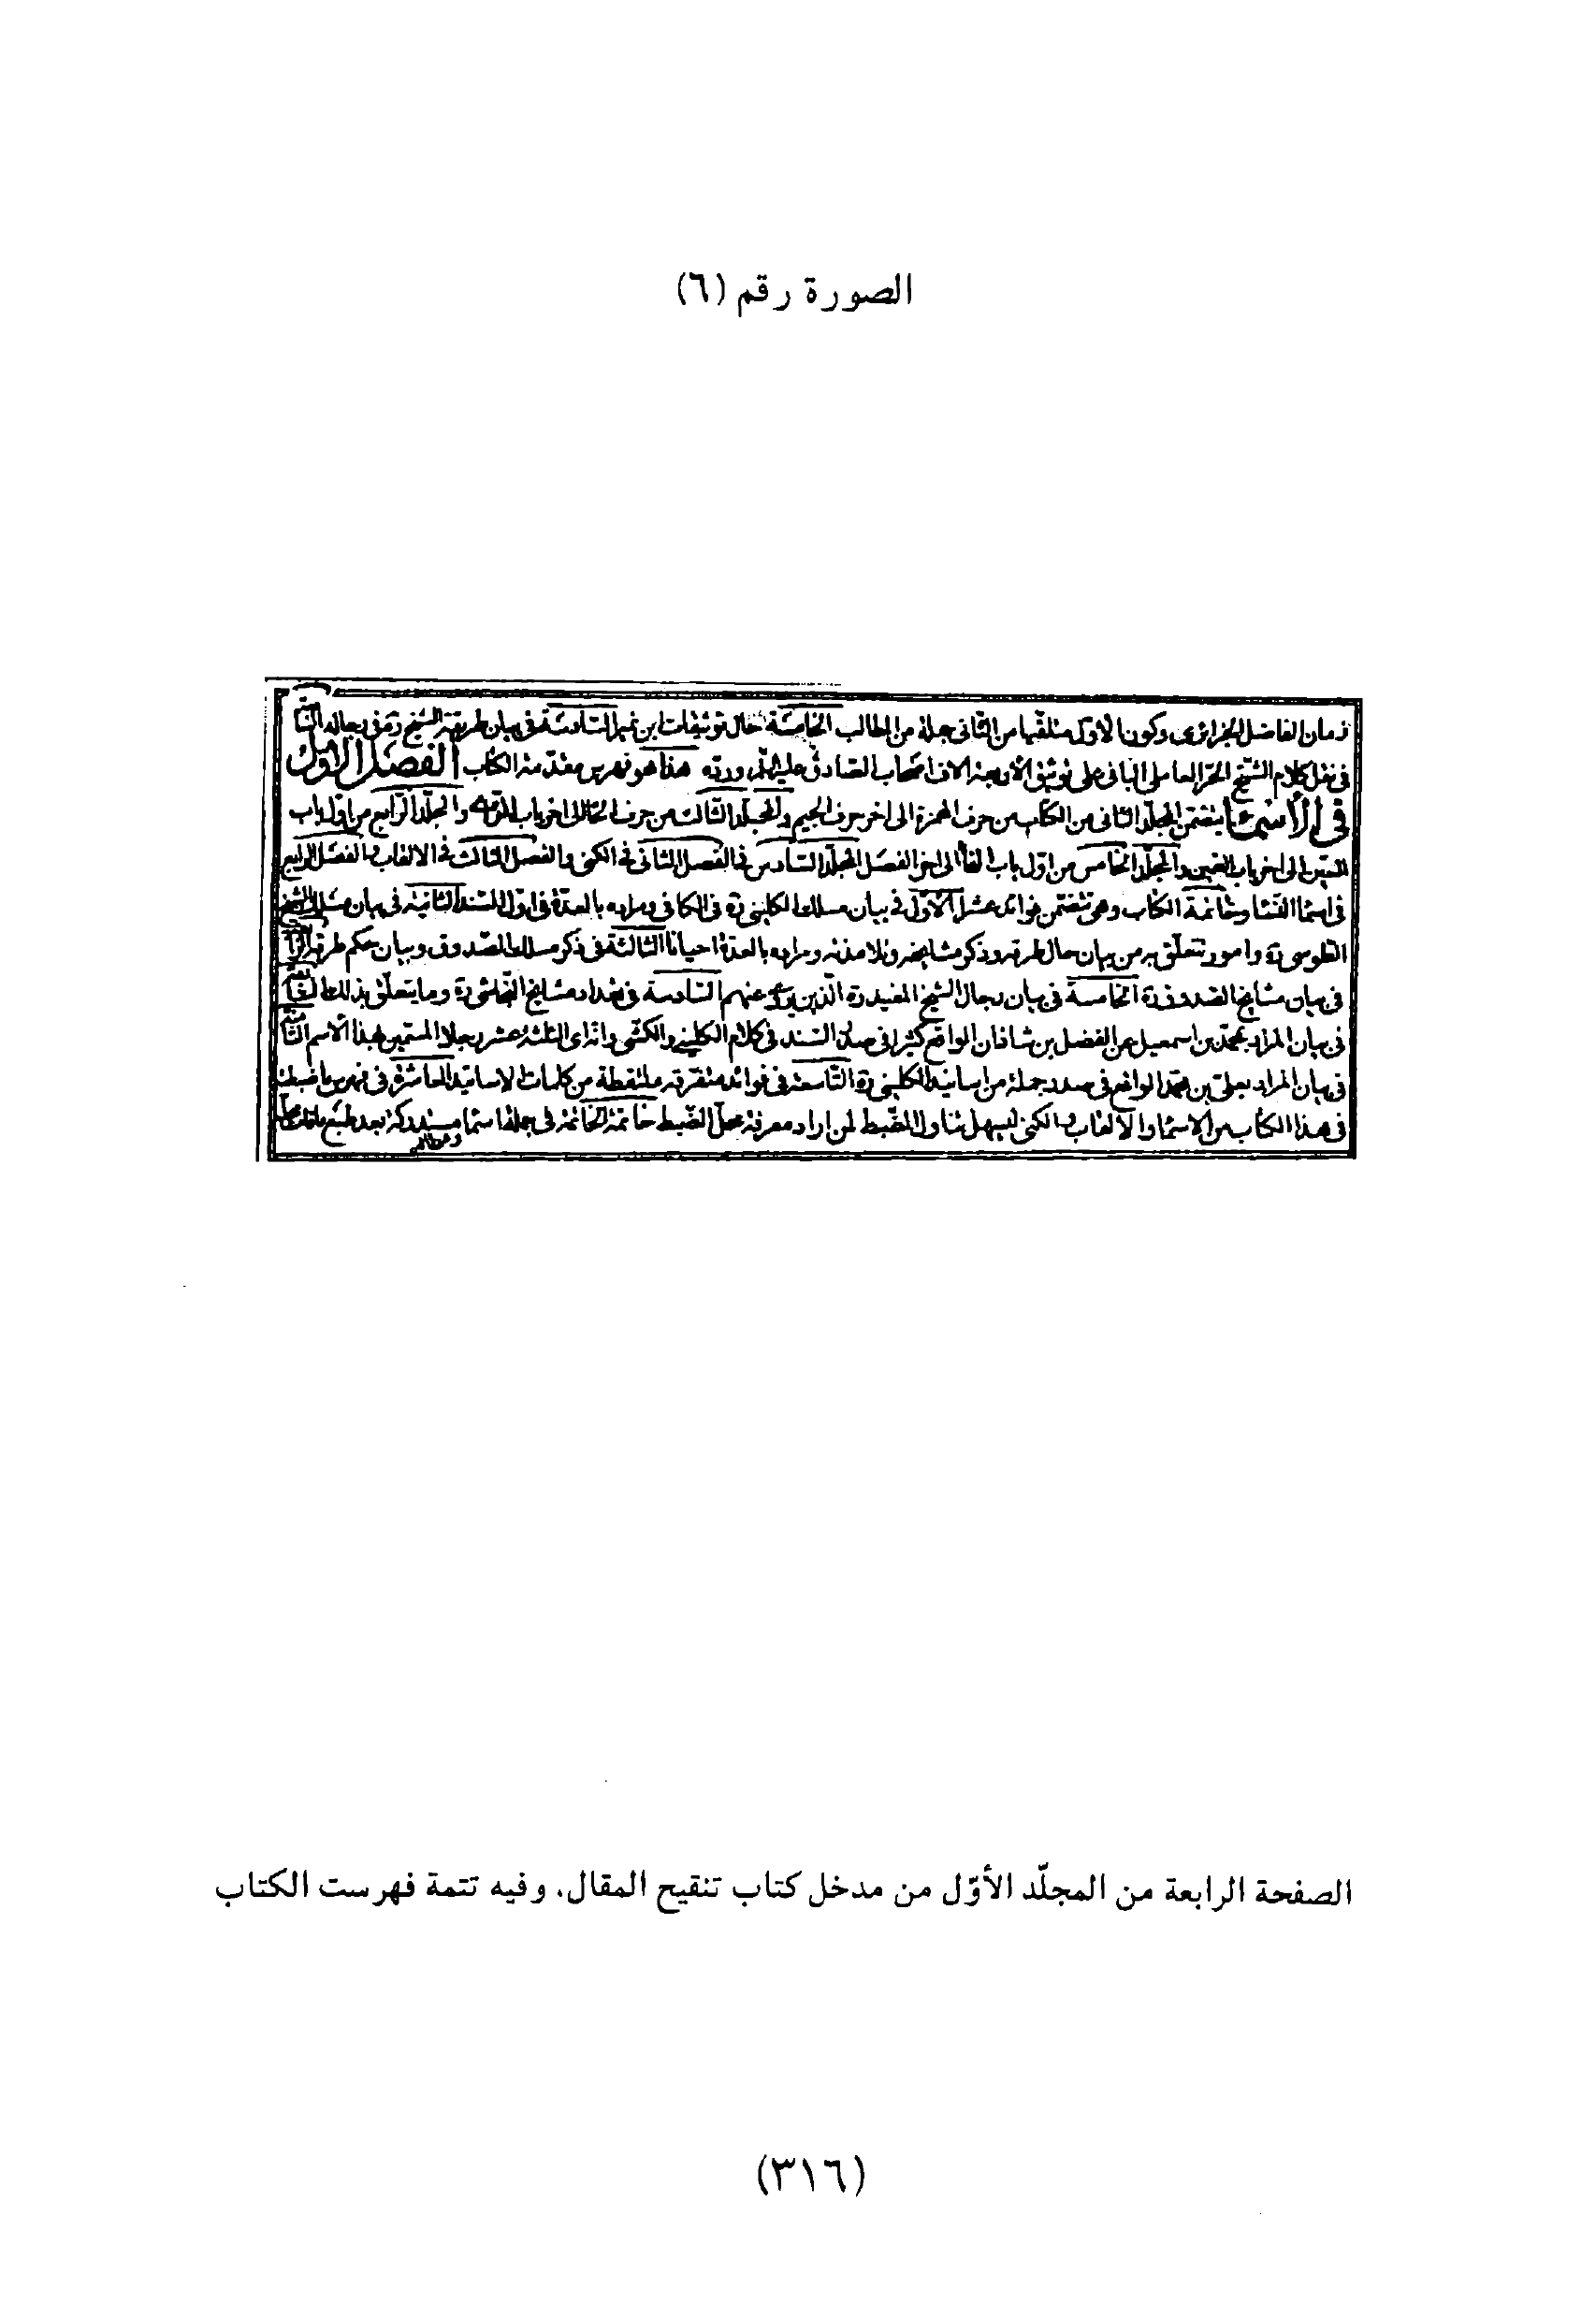 الصورة رقم (٦)
زمان الفاضل الجزائرى وكون الاول متلقيا من الثانى جملة من المطالب الخامسة حال توثيقات ابن نمير السادسة فى بيان طريقة الشيخ ره فى رجاله
فى نقل كلام الشيخ الحر العاملى البانى على توثيق الاربعة الاف اصحاب الصادق ورده هذا هو فهرس مقدمة الكتاب الفصل الاول
فى الأسماء يتضمن المجلد الثانى من الكتاب من حرف الهمزة الى اخر حرف الجيم والمجلد الثالث من حرف الحاء الى اخر باب والمجلد الرابع من اول باب
السين الى اخر باب الغين والمجلد الخامس من اول باب الفاء الى اخر الفصل المجلد السادس فى الفصل الثانى فى الكنى والفصل الثالث فى الالقاب والفصل الرابع
فى اسماء النساء وخاتمة الكتاب وهى تتضمن فوائد عشر الأول فى بيان مسلك الكلينى ره فى الكافى ومراده بالعدة فى اول السند الثانية فى بيان مسلك الشيخ
الطوسى ره وامور تتعلق به من بيان حال طرقه وذكر مشايخه وتلامذته ومراده بالعدة احيانا الثالثة فى ذكر مسلك الصدوق وبيان حكم طرقه
فى بيان مشايخ الصدوق ره الخامسة فى بيان رجال الشيخ المفيد ره الذين يروى عنهم السادسة فى تعداد مشايخ النجاشى ره وما يتعلق بذلك
فى بيان المراد بمحمد بن اسمعيل عن الفضل بن شاذان الواقع كثيرا فى صدر السند فى كلام الكلينى والكشى وانه اى الثلثة عشر رجلا المسمين بهذا الأسم
فى بيان المراد بعلى بن محمد الواقع فى صدر جملة من اسانيد الكلينى ره التاسعة فى فوائد متفرقة ملتقطة من كلمات الاساتيد العاشرة فى فهرس ما ضبطناه
فى هذا الكتاب من الاسماء والالقاب والكنى ليسهل تناول الضبط لمن اراد معرفة محل الضبط خاتمة الخاتمة فى جملة اسماء مستدركة بعد طبع
الصفحة الرابعة من المجلّد الأوّل من مدخل كتاب تنقيح المقال، وفيه تتمة فهرست الكتاب
(٣١٦)